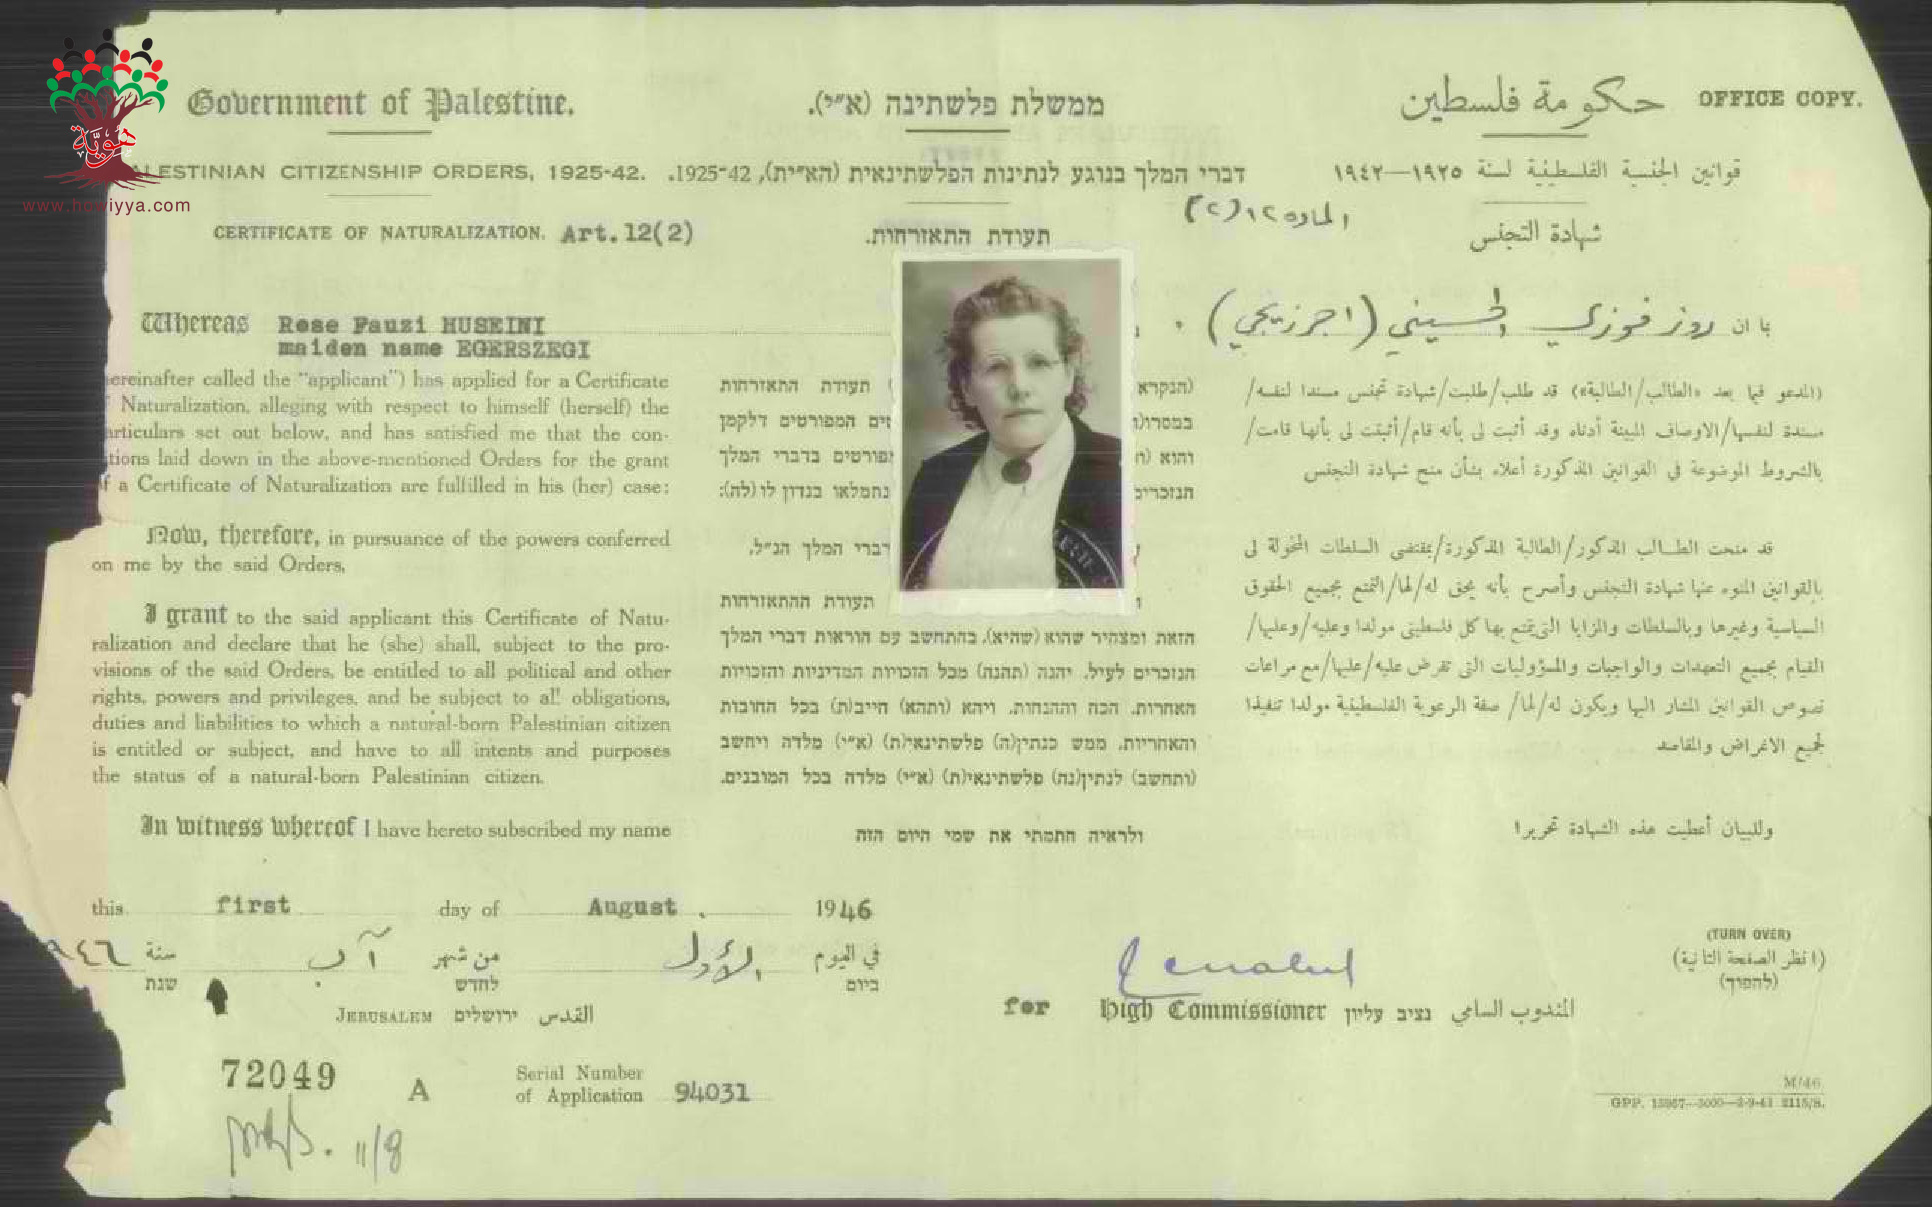 هوية
www.howiyya.com
Government of Palestine.
ממשלת פלשתינה (א״י).
حكومة فلسطين
OFFICE COPY.
PALESTINIAN CITIZENSHIP ORDERS, 1925-42.
דברי המלך בנוגע לנתינות הפלשתינאית (הא״ית), 1925-42.
قوانين الجنسية الفلسطينية لسنة ١٩٢٥—١٩٤٢
CERTIFICATE OF NATURALIZATION. Art.12(2)
תעודת התאזרחות.
المادة ١٢(٢)
شهادة التجنس
Whereas Rose Fauzi HUSEINI
maiden name EGERSZEGI
ereinafter called the "applicant") has applied for a Certificate
Naturalization, alleging with respect to himself (herself) the
articulars set out below, and has satisfied me that the con-
tions laid down in the above-mentioned Orders for the grant
of a Certificate of Naturalization are fulfilled in his (her) case:
Now, therefore, in pursuance of the powers conferred
on me by the said Orders,
I grant to the said applicant this Certificate of Natu-
ralization and declare that he (she) shall, subject to the pro-
visions of the said Orders, be entitled to all political and other
rights, powers and privileges, and be subject to all obligations,
duties and liabilities to which a natural-born Palestinian citizen
is entitled or subject, and have to all intents and purposes
the status of a natural-born Palestinian citizen.
In witness whereof I have hereto subscribed my name
(הנקרא
) תעודת התאזרחות
במסרו(
ים המפורטים דלקמן
והוא (
מפורטים בדברי המלך
הנזכרים
נתמלאו בנדון לו (לה):
דברי המלך הנ״ל.
תעודת ההתאזרחות
הזאת ומצהיר שהוא (שהיא), בהתחשב עם הוראות דברי המלך
הנזכרים לעיל, יהנה (תהנה) מכל הזכויות המדיניות והזכויות
האחרות, הכח וההנחות, ויהא (ותהא) חייב(ת) בכל החובות
והאחריות, ממש כנתין(ה) פלשתינאי(ת) (א״י) מלדה ויחשב
(ותחשב) לנתין(נה) פלשתינאי(ת) (א״י) מלדה בכל המובנים.
ולראיה חתמתי את שמי היום הזה
بما ان روز فوزي الحسيني (اجرزيجي)
(المدعو فيما بعد «الطالب/الطالبة») قد طلب/طلبت/شهادة تجنس مسندا لنفسه/
مسندة لنفسها/الاوصاف المبينة أدناه وقد أثبت لى بأنه قام/أثبتت لى بأنها قامت/
بالشروط الموضوعة في القوانين المذكورة أعلاه بشأن منح شهادة التجنس
قد منحت الطالب المذكور/الطالبة المذكورة/بمقتضى السلطات المخولة لى
بالقوانين المنوه عنها شهادة التجنس وأصرح بأنه يحق له/لها/التمتع بجميع الحقوق
السياسية وغيرها وبالسلطات والمزايا التي يتمتع بها كل فلسطيني مولدا وعليه/وعليها/
القيام بجميع التعهدات والواجبات والمسؤوليات التى تفرض عليه/عليها/مع مراعات
نصوص القوانين المشار اليها ويكون له/لها/ صفة الرعوية الفلسطينية مولدا تنفيذا
لجميع الاغراض والمقاصد
وللبيان أعطيت هذه الشهادة تحريرا
this first day of August 1946
في اليوم الأول من شهر آب سنة ٩٤٦
ביום לחדש שנת
JERUSALEM ירושלים القدس
for High Commissioner נציב עליון المندوب السامي
(TURN OVER)
(انظر الصفحة الثانية)
(להפוך)
72049 A
Serial Number
of Application 94031
11/8
M/46
GPP. 15867—3000—2-9-41 2115/S.